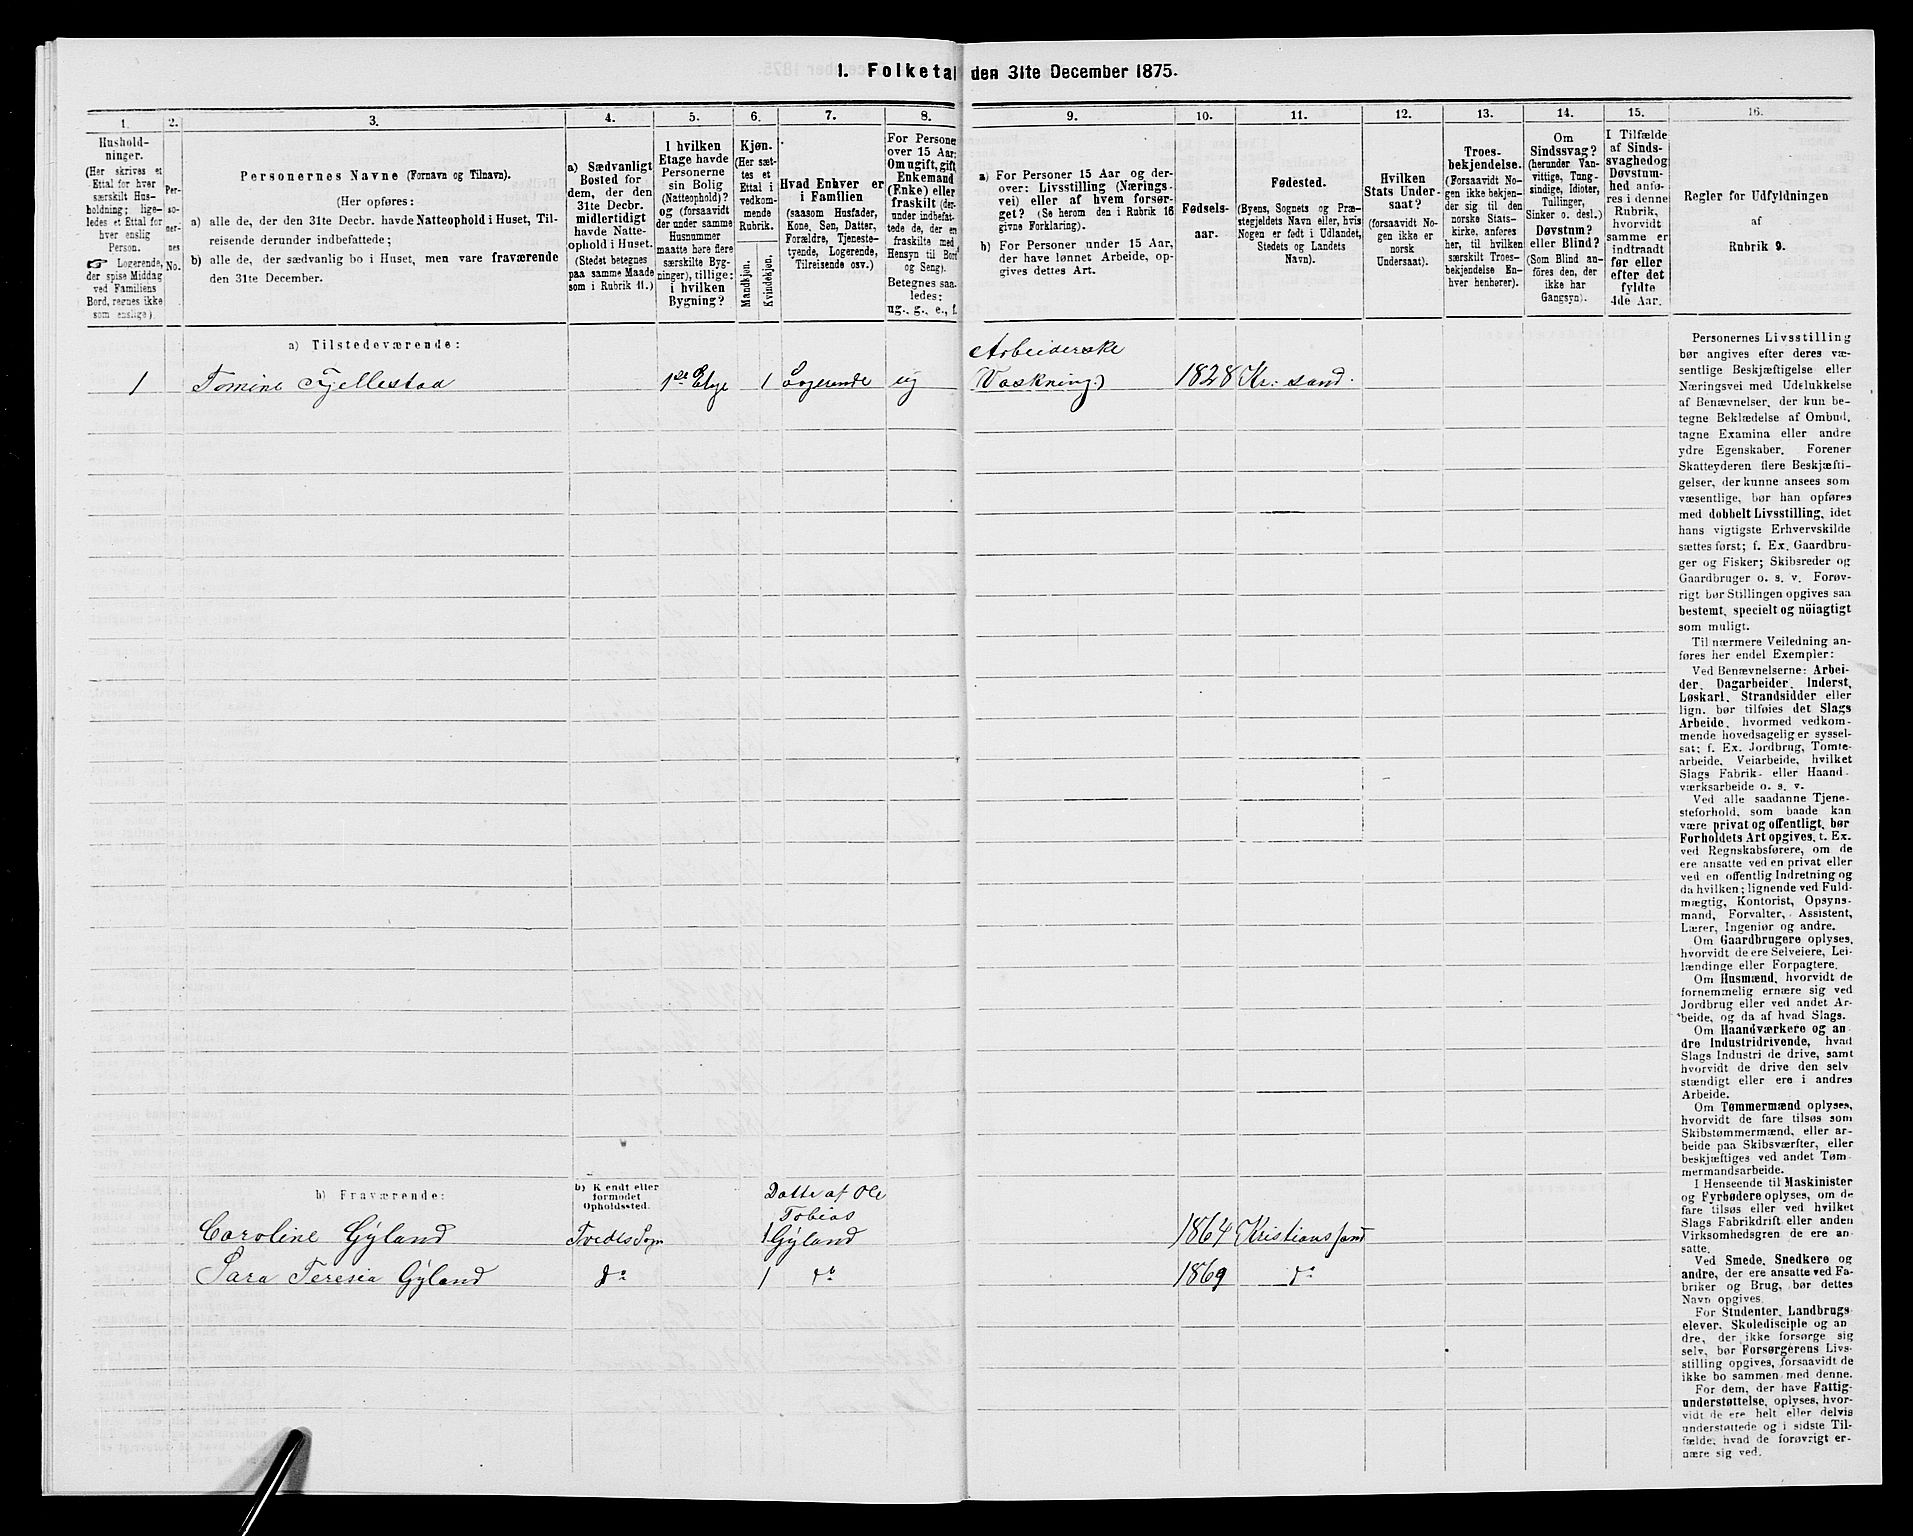 1. Folketal den 31te December 1875.
1.
Hushold-
ninger.
(Her skrives et
Ettal for hver
særskilt Hus-
holdning; lige-
ledes et Ettal for
hver enslig
Person.
☞ Logerende,
der spise Middag
ved Familiens
Bord, regnes ikke
som enslige).
2.
Per-
so-
ner-
nes
No.
3.
Personernes Navne (Fornavn og Tilnavn).
(Her opføres:
a) alle de, der den 31te Decbr. havde Natteophold i Huset, Til-
reisende derunder indbefattede;
b) alle de, der sædvanlig bo i Huset, men vare fraværende
den 31te December.
4.
a) Sædvanligt
Bosted for
dem, der den
31te Decbr.
midlertidigt
havde Natte-
ophold i Huset.
(Stedet betegnes
paa samme Maade
som i Rubrik 11.)
5.
I hvilken
Etage havde
Personerne
sin Bolig
(Natteophold)?
og (forsaavidt
der under samme
Husnummer
maatte høre flere
særskilte Byg-
ninger), tillige:
i hvilken
Bygning?
6.
Kjøn.
(Her sæt-
tes et
Ettal i
vedkom-
mende
Rubrik.
Mandkjøn.
Kvindekjøn.
7.
Hvad Enhver er
i Familien
(saasom Husfader,
Kone, Søn, Datter,
Forældre, Tjeneste-
tyende, Logerende,
Tilreisende osv.)
8.
For Persone
over 15 Aar:
Om ugift, gift
Enkemand
(Enke) eller
fraskilt (der-
under indbefat-
tede de, der er
fraskilte med
Hensyn til Bord
og Seng).
Betegnes saa-
ledes:
ug., g., e., f.
9.
a) For Personer 15 Aar og der-
over: Livsstilling (Nærings-
vei) eller af hvem forsør-
get? (Se herom den i Rubrik 16
givne Forklaring).
b) For Personer under 15 Aar,
der have lønnet Arbeide, op-
gives dettes Art.
10.
Fødsels-
aar.
11.
Fødested.
(Byens, Sognets og Præ-
stegjeldets Navn eller, hvis
Nogen er født i Udlandet,
Stedets og Landets
Navn).
12.
Hvilken
Stats Under-
saat?
(forsaavidt No-
gen ikke er
norsk
Undersaat).
13.
Troes-
bekjendelse.
(Forsaavidt No-
gen ikke bekjen-
der sig til den
norske Stats-
kirke, anføres
her, til hvilken
særskilt Troes-
bekjendelse En-
hver henhører).
14.
Om
Sindssvag?
(herunder Van-
vittige, Tung-
sindige, Idioter,
Tullinger,
Sinker o. desl.)
Døvstum?
eller Blind?
(Som Blind an-
føres den, der
ikke har
Gangsyn).
15.
I Tilfælde
af Sinds-
svaghed og
Døvstum-
hed anfø-
res i denne
Rubrik,
hvorvidt
samme er
indtraadt
før eller
efter det
fyldte
4de Aar.
16.
Regler for Udfyldningen
af
Rubrik 9.
a) Tilstedeværende:
1 Tomine Fjellestad 1ste Etge 1 Logerende ug Arbeiderske
(Vaskning) 1828 Kr: sand.
b) Fraværende:
b) Kjendt eller
formodet
Opholdssted.
Datte af Ole
Tobias
Caroline Gyland Tveds Sogn 1 Gyland 1864 Kristianssand
Sara Teresia Gyland do 1 do 1869 do
Personernes Livsstilling
bør angives efter deres væ-
sentlige Beskjæftigelse eller
Næringsvei med Udelukkelse
af Benævnelser, der kun be-
tegne Beklædelse af Ombud,
tagne Examina eller andre
ydre Egenskaber. Forener
Skatteyderen flere Beskjæfti-
gelser, der kunne ansees som
væsentlige, bør han opføres
med dobbelt Livsstilling, idet
hans vigtigste Erhvervskilde
sættes først; f. Ex. Gaardbru-
ger og Fisker; Skibsreder og
Gaardbruger o. s. v. Forøv-
rigt bør Stillingen opgives saa
bestemt, specielt og nöiagtigt
som muligt.
Til nærmere Veiledning an-
føres her endel Exempler:
Ved Benævnelserne: Arbei-
der, Dagarbeider, Inderst,
Løskarl, Strandsidder eller
lign. bør tilføies det Slags
Arbeide, hvormed vedkom-
mende hovedsagelig er syssel-
sat; f. Ex. Jordbrug, Tomte-
arbeide, Veiarbeide, hvilket
Slags Fabrik- eller Haand-
værksarbeide o. s. v.
Ved alle saadanne Tjene-
steforhold, som baade kan
være privat og offentligt, bør
Forholdets Art opgives, t. Ex.
ved Regnskabsførere, om de
ere ansatte ved en privat eller
ved en offentlig Indretning og
da hvilken; lignende ved Fuld-
mægtig, Kontorist, Opsyns-
mand, Forvalter, Assistent,
Lærer, Ingeniør og andre.
Om Gaardbrugere oplyses,
hvorvidt de ere Selveiere, Lei-
lændinge eller Forpagtere.
Om Husmænd, hvorvidt de
fornemmelig ernære sig ved
Jordbrug eller ved andet Ar-
beide, og da af hvad Slags.
Om Haandværkere og an
dre Industridrivende, hvad
Slags Industri de drive, samt
hvorvidt de drive den selv
stændigt eller ere i andres
Arbeide.
Om Tømmermænd oplyses,
hvorvidt de fare tilsøs som
Skibstømmermænd, eller ar-
beide paa Skibsværfter, eller
beskjæftiges ved andet Tøm-
mermandsarbeide.
I Henseende til Maskinister
og Fyrbødere oplyses, om de
fare tilsøs eller ved hvilket
Slags Fabrikdrift eller anden
Virksomhedsgren de ere an-
satte.
Ved Smede, Snedkere og
andre, der ere ansatte ved Fa-
briker og Brug, bør dettes
Navn opgives.
For Studenter, Landbrugs
elever, Skoledisciple og an
dre, der ikke forsørge sig
selv, bør Forsørgerens Livs-
stilling opgives, forsaavidt de
ikke bo sammen med denne.
For dem, der have Fattig-
understøttelse, oplyses, hvor-
vidt de ere helt eller delvis
understøttede og i sidste Til-
fælde, hvad de forøvrigt er-
nære sig ved.